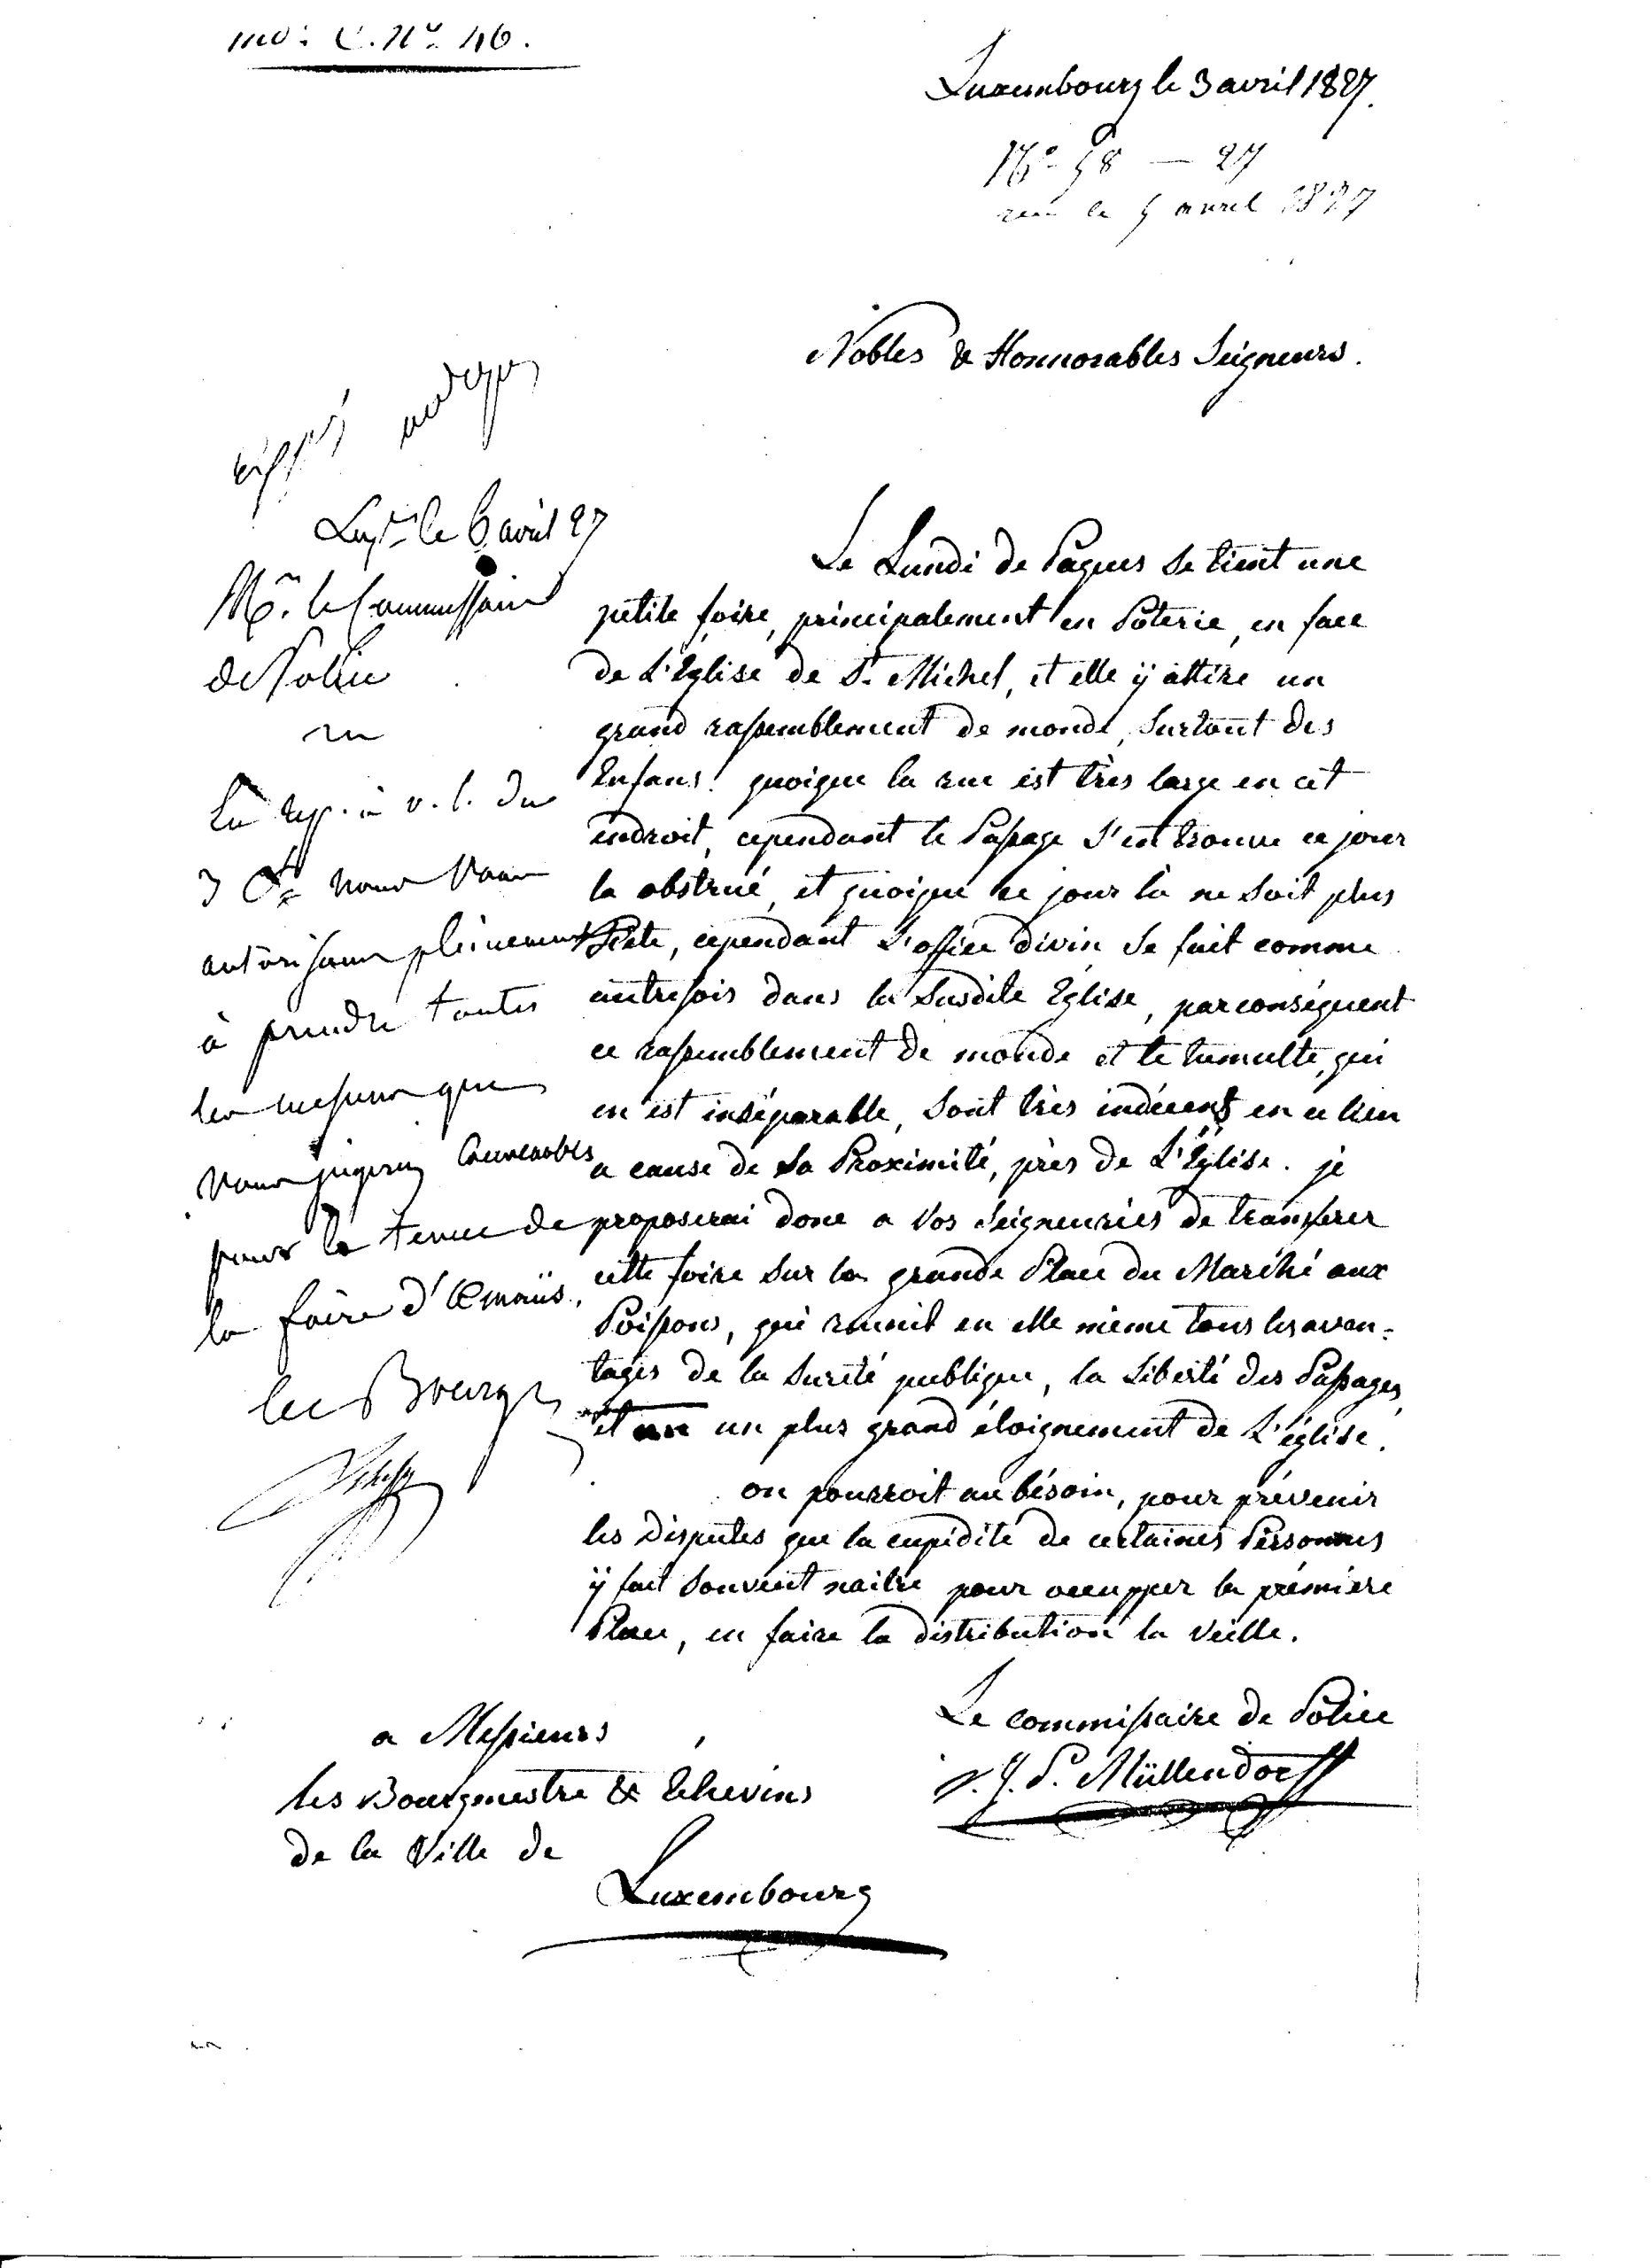 C. No. 46.
Luxembourg le 3 avril 1827.
No 58 — 27
le 5 avril 1827
Nobles & Honnorables Seigneurs.
Le Lundi de Paques se tient une
petite foire, principalement en Poterie, en face
de L'Eglise de St. Michel, et elle ÿ attire un
grand rassemblement de monde, surtout des
Enfans! quoique la rue est très large en cet
endroit, cependant le Passage s'est trouvé ce jour
la obstrué, et quoique ce jour là ne soit plus
Fête, cependant L'office divin se fait comme
autrefois dans la susdite Eglise, parconséquent
ce rassemblement de monde et le tumulte, qui
en est inséparable, sont très indécent en ce lieu
a cause de sa Proximité, près de L'Eglise. je
proposerai donc a Vos Seigneuries de transferer
cette foire sur la grande Place du Marché aux
Poissons, qui reunit en elle même tous les avan-
tages de la sureté publique, la Liberté des Passages,
et un plus grand éloignement de L'église.
on pourroit au bésoin, pour prévenir
les disputes que la cupidité de certaines Personnes
ÿ fait souvent naitre pour occupper la prémière
Place, en faire la distribution la veille.
Le commissaire de Police
J. P. Müllendorff
a Messieurs
les Bourgmestre & Echevins
de la Ville de
Luxembourg
Luxg. le 6 avril 27
Mr. le Commissaire
de Police
En rep. à v. l. du
3 Ct nous vous
autorisons pleinement
à prendre toutes
les mesures que
vous jugerez convenables
pour la tenue de
la foire d'Emaüs.
les Bourgm